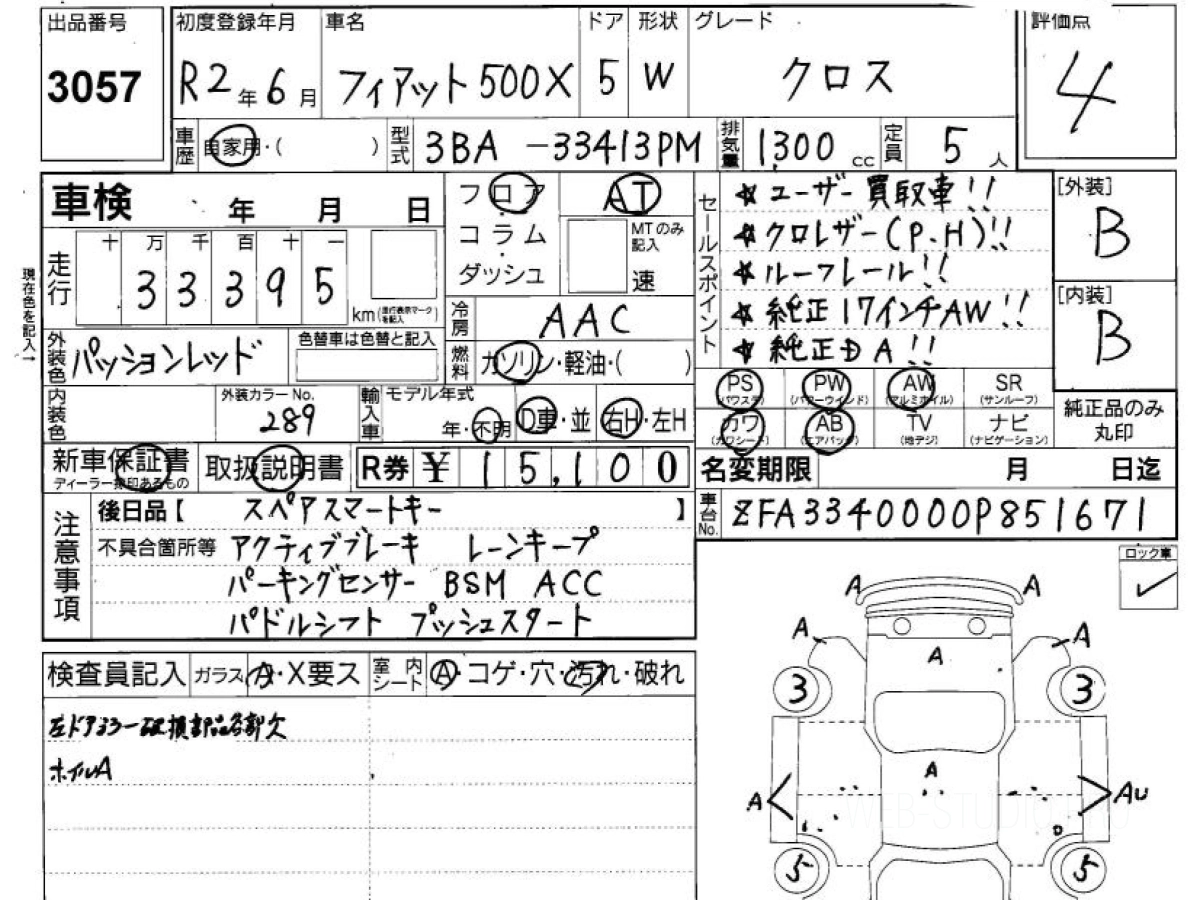 出品番号 初度登録年月 車名 ドア 形状 グレード 評価点
3057 R2年6月 フィアット500X 5 W クロス 4
車歴 自家用・( ) 型式 3BA -33413PM 排気量 1300cc 定員 5人
車検 年 月 日
フロア AT
コラム MTのみ記入
ダッシュ 速
セールスポイント
★ユーザー買取車!!
★クロレザー(P.H)!!
★ルーフレール!!
★純正17インチAW!!
★純正DA!!
[外装]
B
[内装]
B
現在色を記入→
走行 十 万 千 百 十 一
33395 km (走行表示マークを記入)
冷房 AAC
外装色 パッションレッド 色替車は色替と記入
燃料 ガソリン・軽油・( )
内装色 外装カラーNo. 289
輸入車 モデル年式 年・不明 D車・並 右H・左H
PS (パワステ) PW (パワーウインド) AW (アルミホイル) SR (サンルーフ)
カワ (カワシート) AB (エアバッグ) TV (地デジ) ナビ (ナビゲーション)
純正品のみ丸印
新車保証書 取扱説明書 R券 ¥15,100
名変期限 月 日迄
車台No. ZFA3340000P851671
注意事項
後日品【 スペアスマートキー 】
不具合箇所等 アクティブブレーキ レーンキープ
パーキングセンサー BSM ACC
パドルシフト プッシュスタート
ロック車
検査員記入 ガラス A・X要ス 室内シート A・コゲ・穴・汚れ・破れ
左ドアミラー破損部品各部欠
ホイルA
A A
A A
A
3 3
A
A AU
5 5
WEB-STUDIO PRO